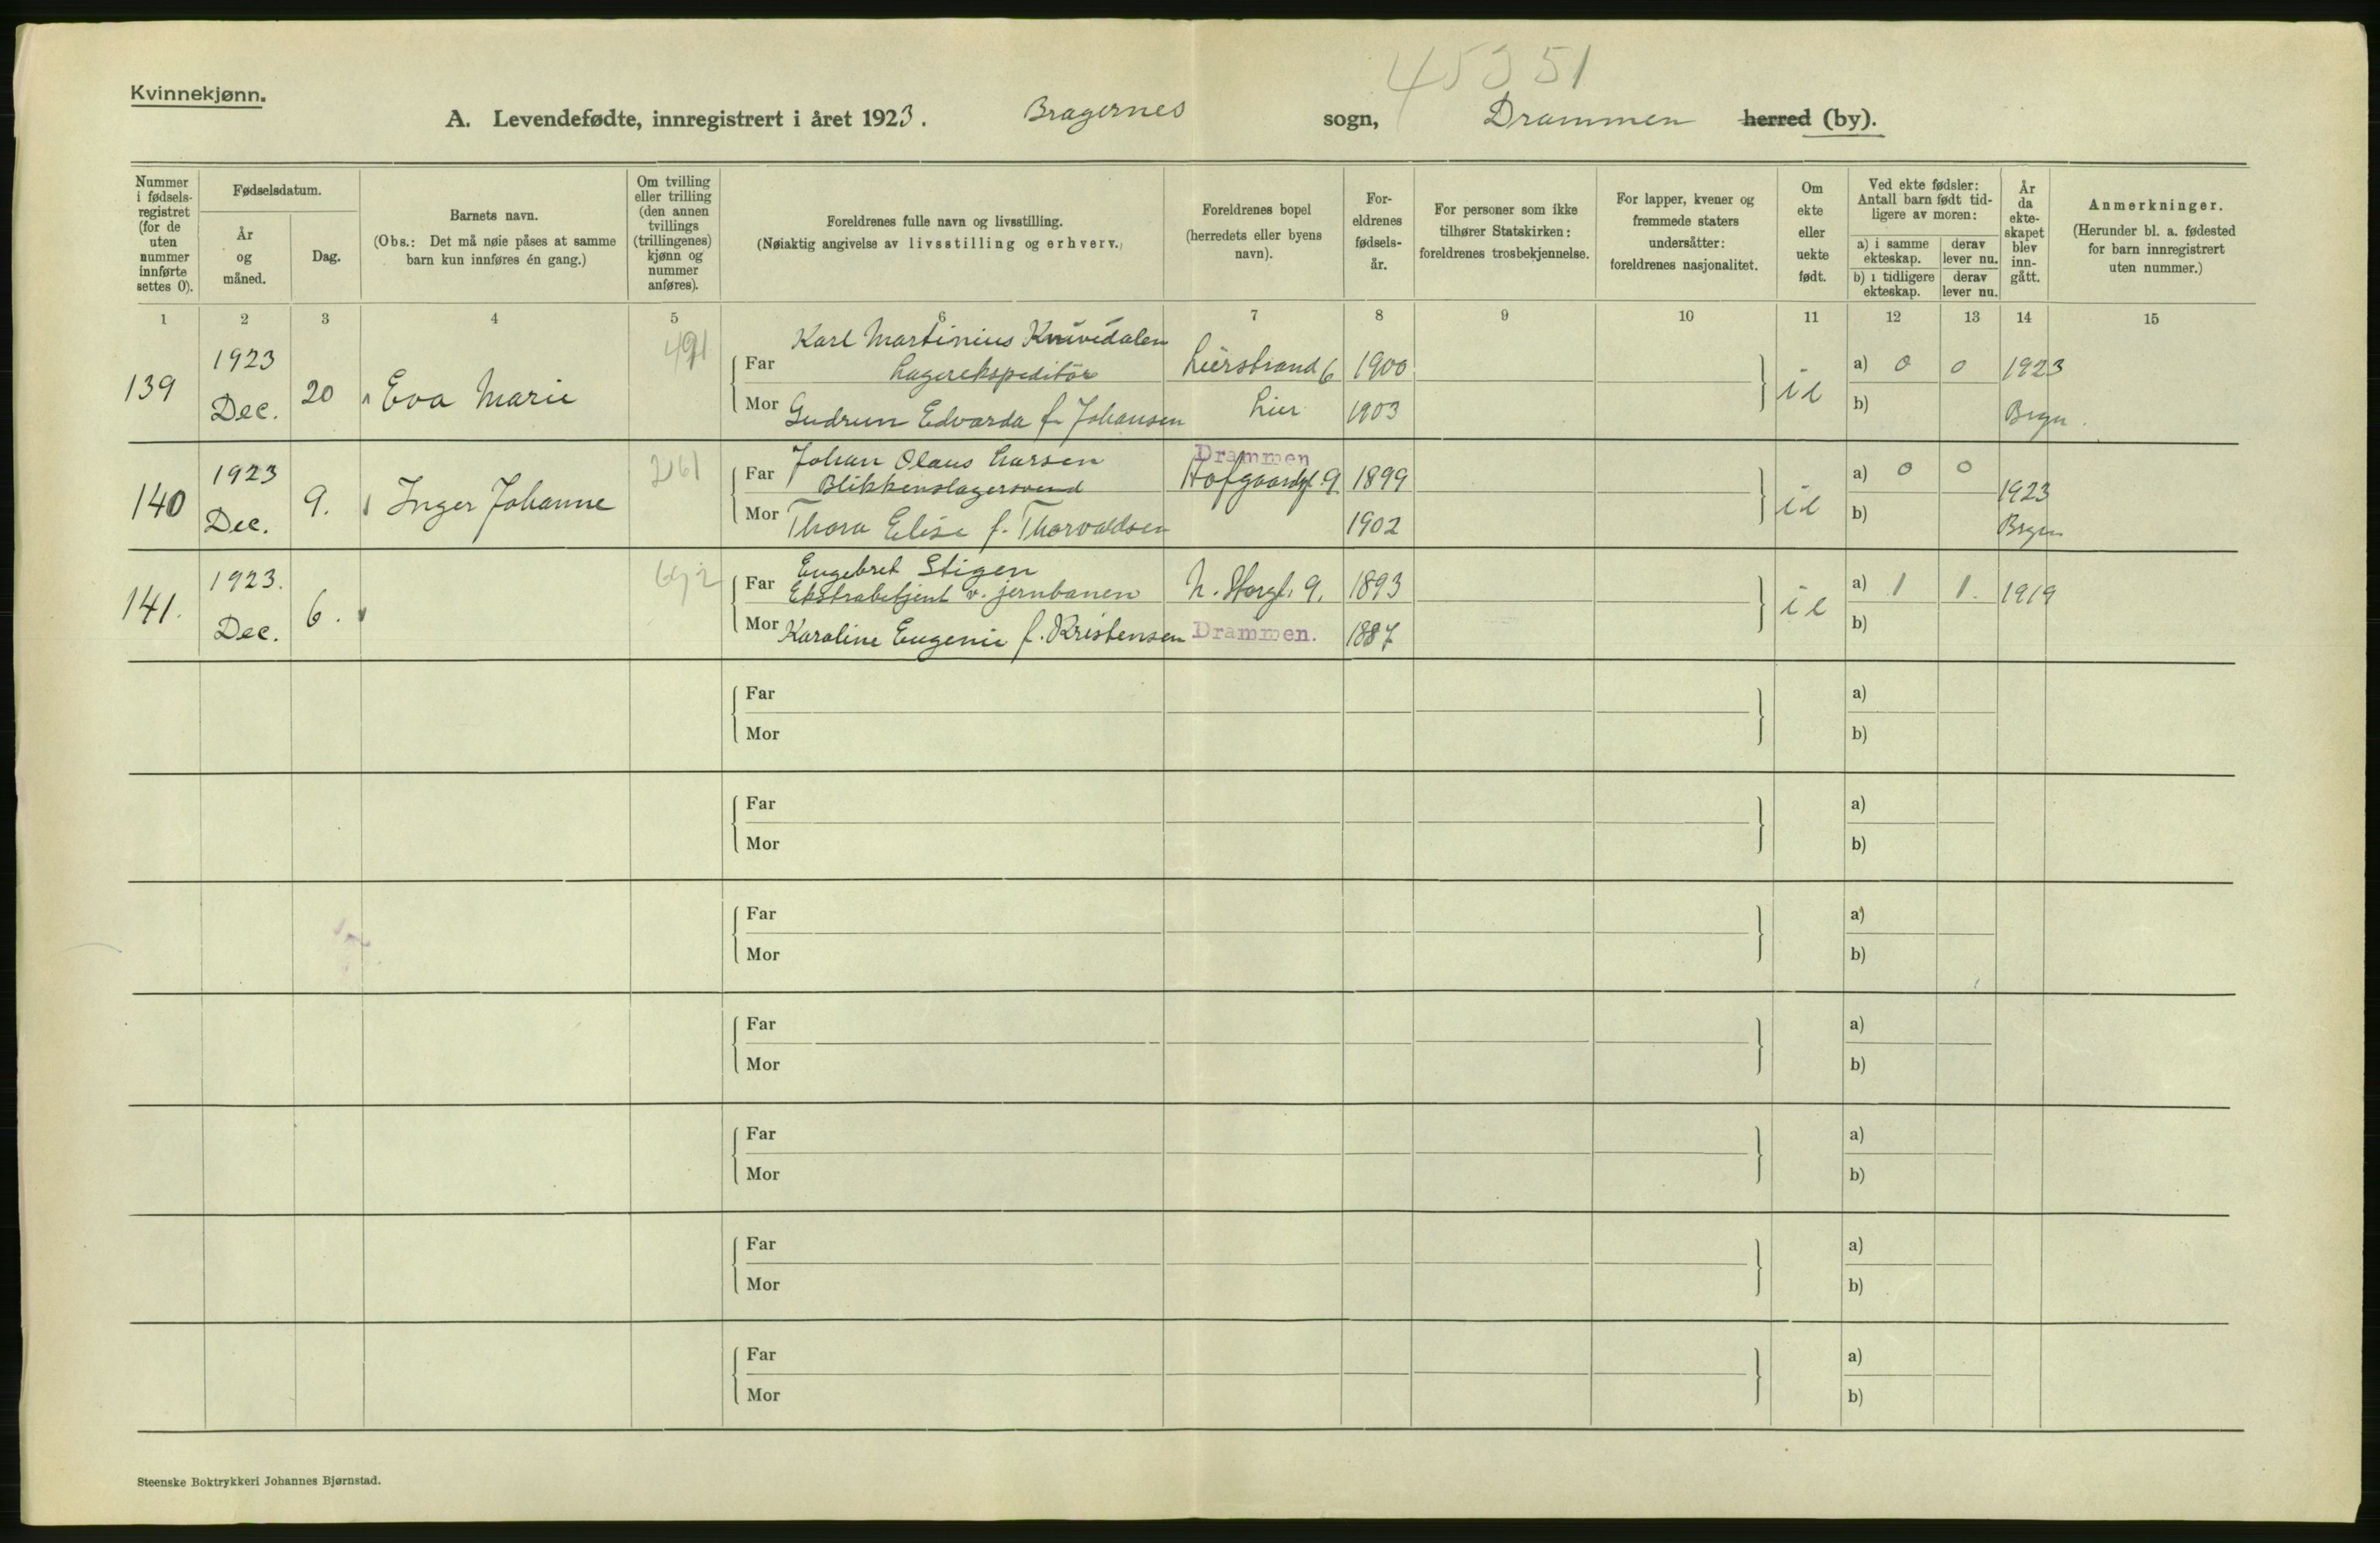 45351
Kvinnekjønn.
A. Levendefødte, innregistrert i året 1923. Bragernes sogn, Drammen herred (by).
Nummer i fødsels-registret (for de uten nummer innførte settes 0).
Fødselsdatum.
År og måned.
Dag.
Barnets navn.
(Obs.: Det må nøie påses at samme barn kun innføres én gang.)
Om tvilling eller trilling (den annen tvillings (trillingenes) kjønn og nummer anføres).
Foreldrenes fulle navn og livsstilling.
(Nøiaktig angivelse av livsstilling og erhverv.)
Foreldrenes bopel (herredets eller byens navn).
For-eldrenes fødsels-år.
For personer som ikke tilhører Statskirken: foreldrenes trosbekjennelse.
For lapper, kvener og fremmede staters undersåtter: foreldrenes nasjonalitet.
Om ekte eller uekte født.
Ved ekte fødsler: Antall barn født tid-ligere av moren:
a) i samme ekteskap.
derav lever nu.
b) i tidligere ekteskap.
derav lever nu.
År da ekte-skapet blev inn-gått.
Anmerkninger.
(Herunder bl. a. fødested for barn innregistrert uten nummer.)
1 2 3 4 5 6 7 8 9 10 11 12 13 14 15
139 1923 Dec. 20 Eva Marie 491
Far Karl Martinius
Lagerekspeditör Lierstrand 6 1900
Mor Gudrun Edvarda f. Johansen Lier 1903
a) 0 0 1923
b) Brgn.
140 1923 Dec. 9. Inger Johanne 261
Far Johan Olaus Larsen Drammen
Blikkenslagersvend Hofgaardgt. 9 1899
Mor Thora Elise f. Thorvaldsen 1902
a) 0 0 1923
b) Brgn
141. 1923. Dec. 6.
Far Engebret Stigen
Ekstrabetjent v. jernbanen N. Storgt. 9. 1893
Mor Karoline Eugenie f. Kristensen Drammen. 1887
a) 1 1. 1919
b)
Far a)
Mor b)
Far a)
Mor b)
Far a)
Mor b)
Far a)
Mor b)
Far a)
Mor b)
Far a)
Mor b)
Far a)
Mor b)
Steenske Boktrykkeri Johannes Bjørnstad.